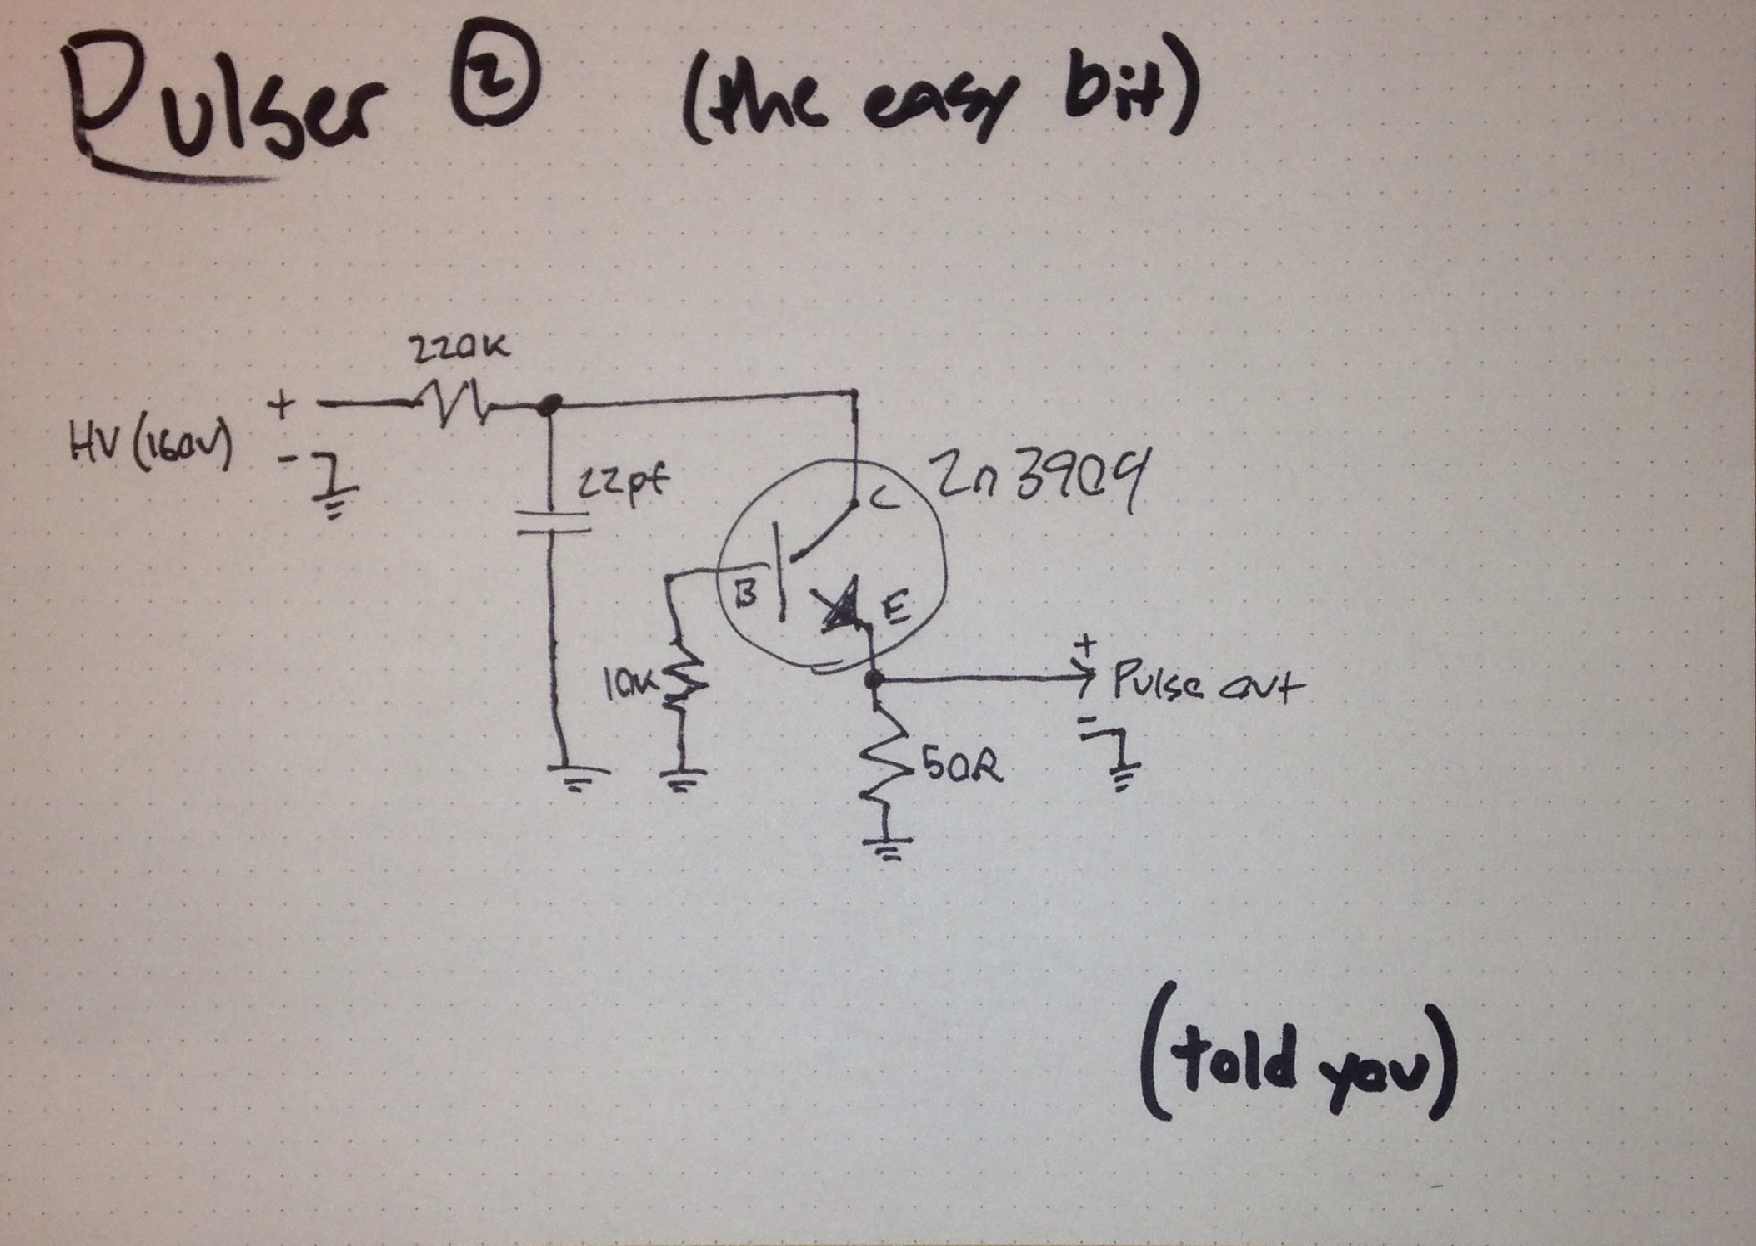 Pulser ② (the easy bit)
220K
HV (160V) + -
22pf
2n3904
C
B
E
10K
+ Pulse out
-
50R
(told you)